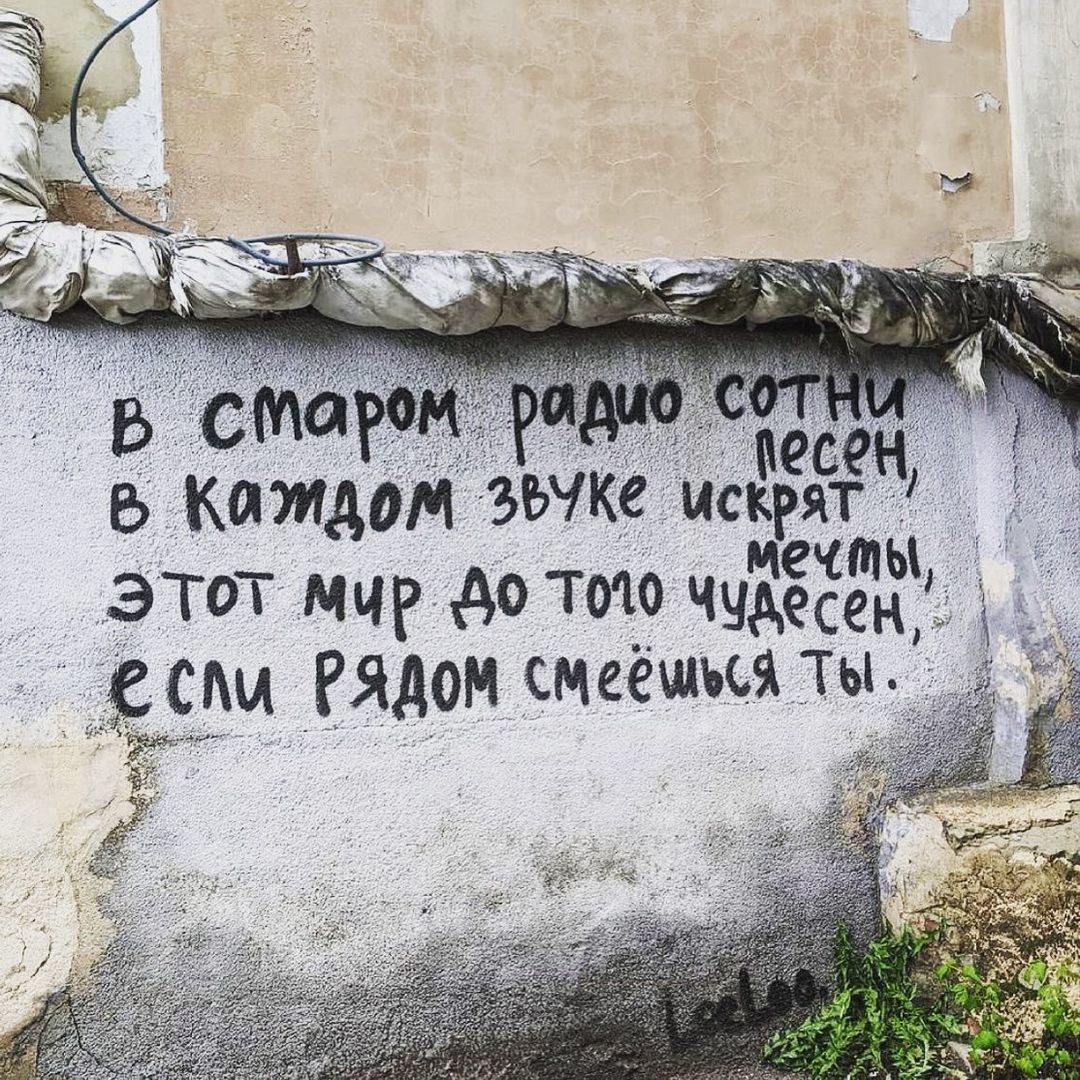 В старом радио сотни
песен,
в каждом звуке искрят
мечты,
этот мир до того чудесен,
если рядом смеёшься ты.
LeeLoo.